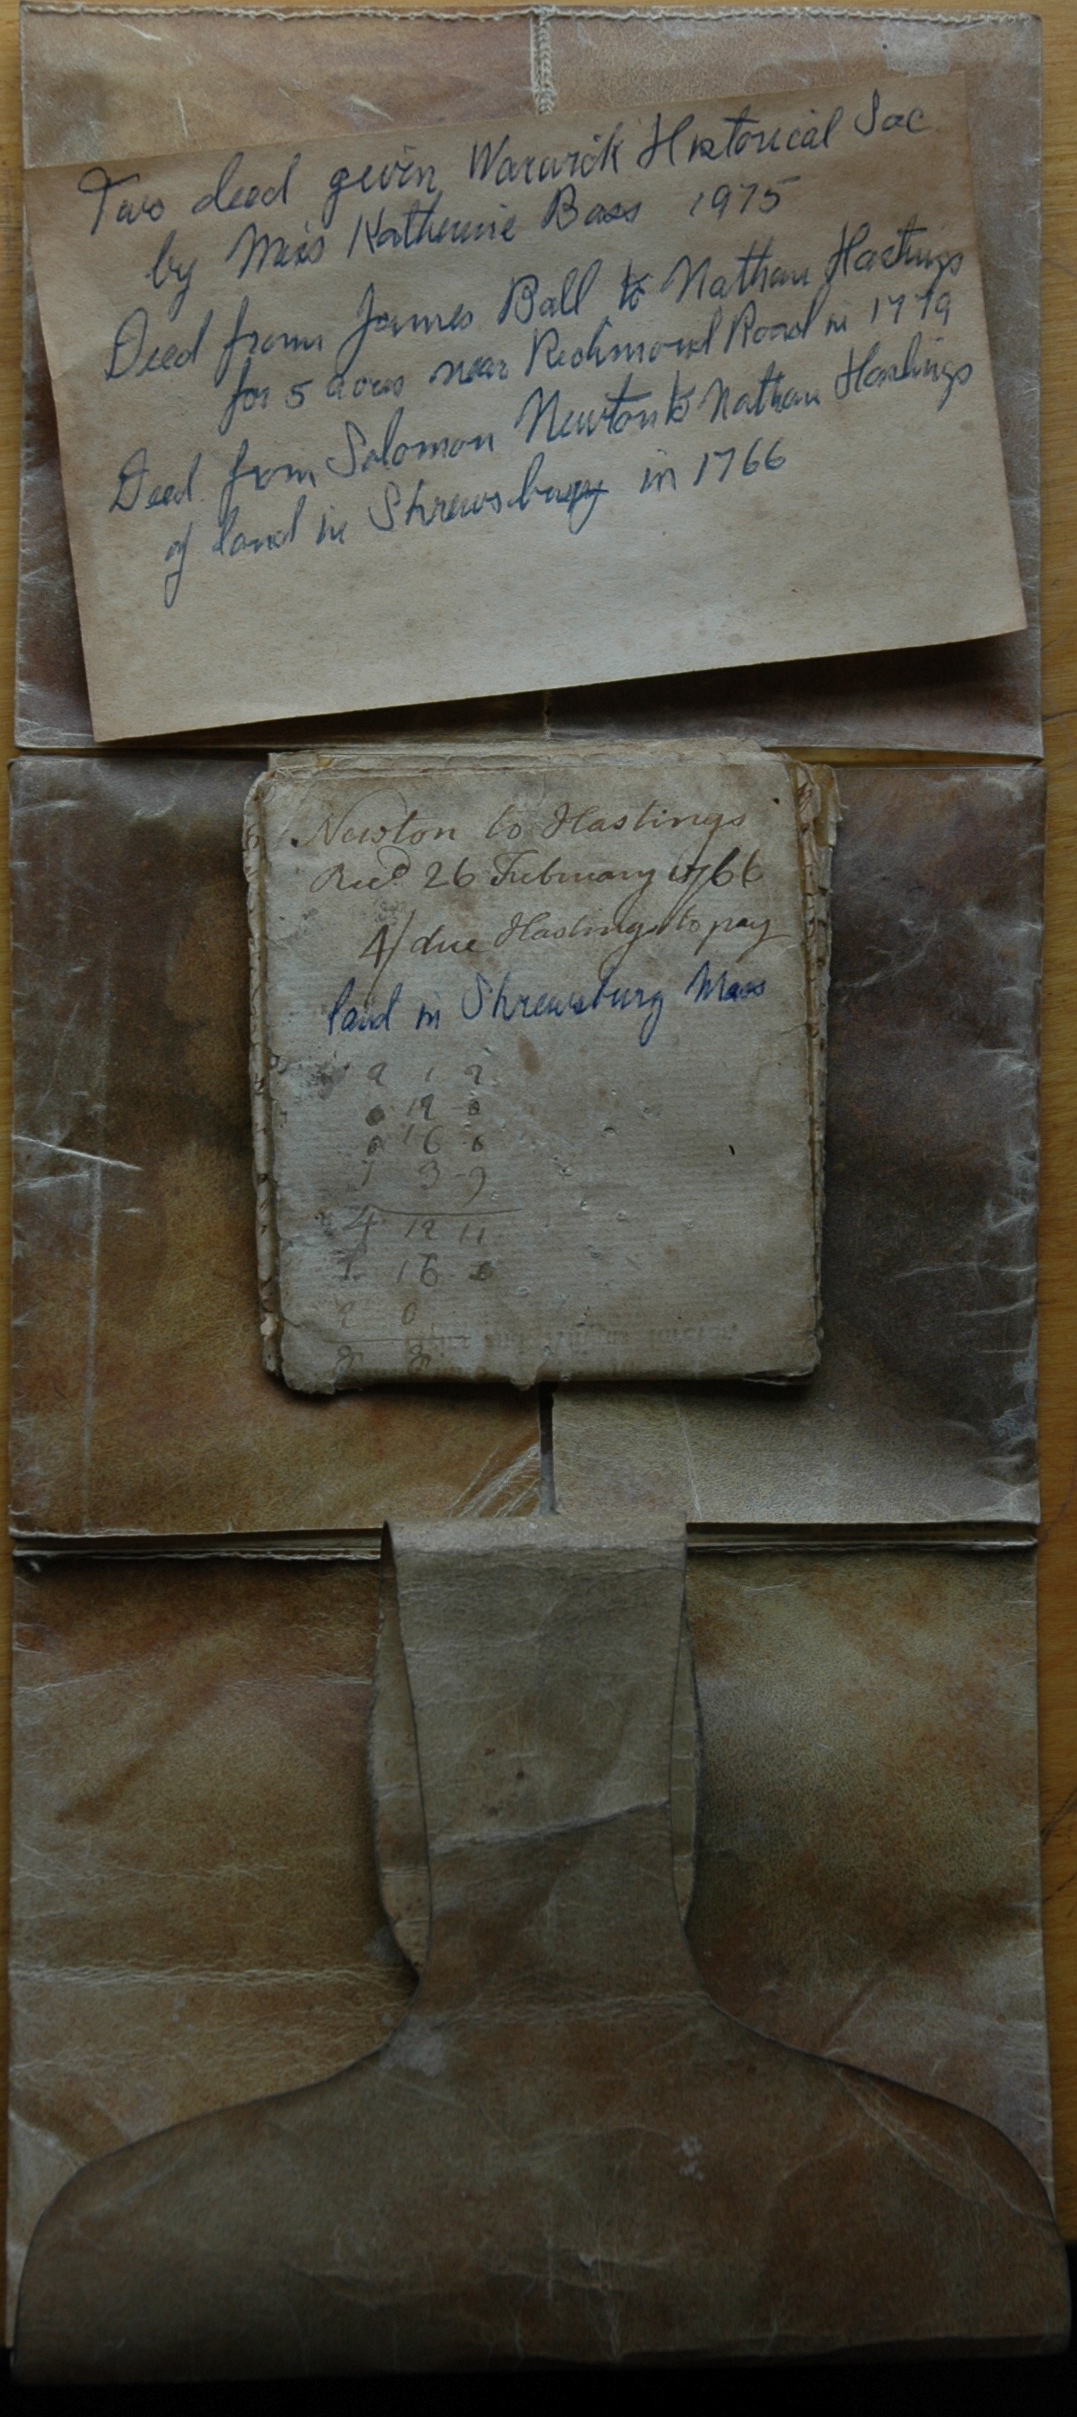 Two deed given Warwick Historical Soc
by Miss Katherine Bass 1975
Deed from James Ball to Nathan Hastings
for 5 acres near Richmond Road in 1779
Deed from Solomon Newton to Nathan Hastings
of land in Shrewsbury in 1766
Newton to Hastings
Recd 26 February 1766
4/ due Hastings to pay
land in Shrewsbury Mass
2 1 2
0 12 0
0 16 0
1 3 9
4 12 11
1 16
2 0